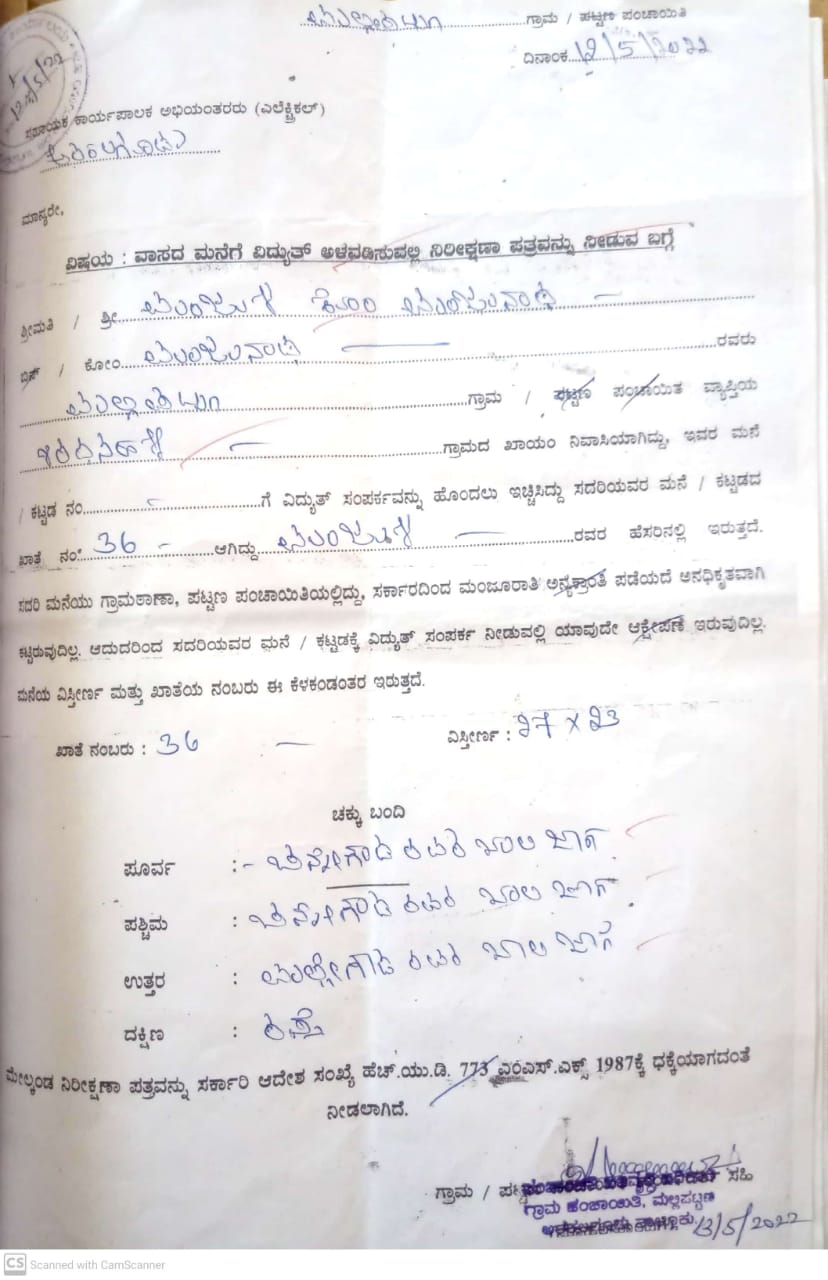 ಮಲ್ಲಿಪಟ್ಟಣ ಗ್ರಾಮ / ಪಟ್ಟಣ ಪಂಚಾಯಿತಿ
ದಿನಾಂಕ 12/5/2022
12/5/22
ಸಹಾಯಕ ಕಾರ್ಯಪಾಲಕ ಅಭಿಯಂತರರು (ಎಲೆಕ್ಟ್ರಿಕಲ್)
ಅರಕಲಗೂಡು
ಮಾನ್ಯರೇ,
ವಿಷಯ : ವಾಸದ ಮನೆಗೆ ವಿದ್ಯುತ್ ಅಳವಡಿಸುವಲ್ಲಿ ನಿರೀಕ್ಷಣಾ ಪತ್ರವನ್ನು ನೀಡುವ ಬಗ್ಗೆ
ಶ್ರೀಮತಿ / ಶ್ರೀ. ಮಂಜುಳ ಕೋಂ ಮಂಜುನಾಥ —
ಬಿನ್ / ಕೋಂ ಮಂಜುನಾಥ — ರವರು
ಗ್ರಾಮ / ಪಟ್ಟಣ ಪಂಚಾಯಿತ ವ್ಯಾಪ್ತಿಯ
ಗ್ರಾಮದ ಖಾಯಂ ನಿವಾಸಿಯಾಗಿದ್ದು, ಇವರ ಮನೆ
/ ಕಟ್ಟಡ ನಂ. - ಗೆ ವಿದ್ಯುತ್ ಸಂಪರ್ಕವನ್ನು ಹೊಂದಲು ಇಚ್ಚಿಸಿದ್ದು ಸದರಿಯವರ ಮನೆ / ಕಟ್ಟಡದ
ಖಾತೆ ನಂ: 36 - ಆಗಿದ್ದು ಮಂಜುಳ — ರವರ ಹೆಸರಿನಲ್ಲಿ ಇರುತ್ತದೆ.
ಸದರಿ ಮನೆಯು ಗ್ರಾಮಠಾಣಾ, ಪಟ್ಟಣ ಪಂಚಾಯಿತಿಯಲ್ಲಿದ್ದು, ಸರ್ಕಾರದಿಂದ ಮಂಜೂರಾತಿ ಅನ್ಯಕ್ರಾಂತ ಪಡೆಯದೆ ಅನಧಿಕೃತವಾಗಿ
ಕಟ್ಟಿರುವುದಿಲ್ಲ. ಆದುದರಿಂದ ಸದರಿಯವರ ಮನೆ / ಕಟ್ಟಡಕ್ಕೆ ವಿದ್ಯುತ್ ಸಂಪರ್ಕ ನೀಡುವಲ್ಲಿ ಯಾವುದೇ ಆಕ್ಷೇಪಣೆ ಇರುವುದಿಲ್ಲ.
ಮನೆಯ ವಿಸ್ತೀರ್ಣ ಮತ್ತು ಖಾತೆಯ ನಂಬರು ಈ ಕೆಳಕಂಡಂತರ ಇರುತ್ತದೆ.
ಖಾತೆ ನಂಬರು : 36 — ವಿಸ್ತೀರ್ಣ : 27 x 23
ಚಕ್ಕು ಬಂದಿ
ಪೂರ್ವ :- ಚನ್ನೇಗೌಡ ರವರ ಖಾಲಿ ಜಾಗ
ಪಶ್ಚಿಮ : ಚನ್ನೇಗೌಡ ರವರ ಖಾಲಿ ಜಾಗ
ಉತ್ತರ : ಮಲ್ಲೇಗೌಡ ರವರ ಖಾಲಿ ಜಾಗ
ದಕ್ಷಿಣ : ರಸ್ತೆ
ಮೇಲ್ಕಂಡ ನಿರೀಕ್ಷಣಾ ಪತ್ರವನ್ನು ಸರ್ಕಾರಿ ಆದೇಶ ಸಂಖ್ಯೆ ಹೆಚ್.ಯು.ಡಿ. 773 ಎಂಎಸ್.ಎಕ್ಸ್ 1987ಕ್ಕೆ ಧಕ್ಕೆಯಾಗದಂತೆ
ನೀಡಲಾಗಿದೆ.
ಗ್ರಾಮ / ಸಹಿ
ಗ್ರಾಮ ಪಂಚಾಯಿತಿ, ಮಲ್ಲಿಪಟ್ಟಣ
ಅರಕಲಗೂಡು ತಾಲ್ಲೂಕು. 13/5/2022
CS Scanned with CamScanner